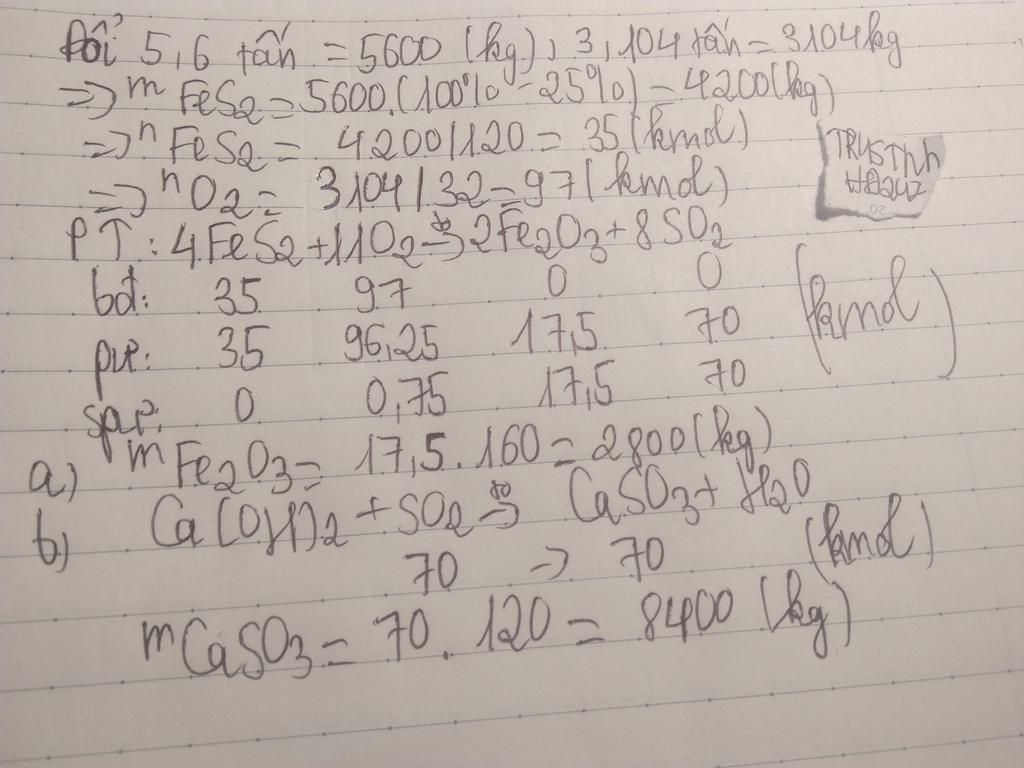 Đổi 5,6 tấn = 5600 (kg), 3,104 tấn = 3104 kg
=> mFeS2 = 5600.(100% - 25%) = 4200 (kg)
=> nFeS2 = 4200/120 = 35 (kmol)
=> nO2 = 3104/32 = 97 (kmol)
TRUSTNh
H80247
PT: 4FeS2 + 11O2 -t°-> 2Fe2O3 + 8SO2
bđ: 35 97 0 0
pư: 35 96,25 17,5 70 (kmol)
spư: 0 0,75 17,5 70
a) mFe2O3 = 17,5.160 = 2800 (kg)
b) Ca(OH)2 + SO2 -t°-> CaSO3 + H2O
70 -> 70 (kmol)
mCaSO3 = 70.120 = 8400 (kg)